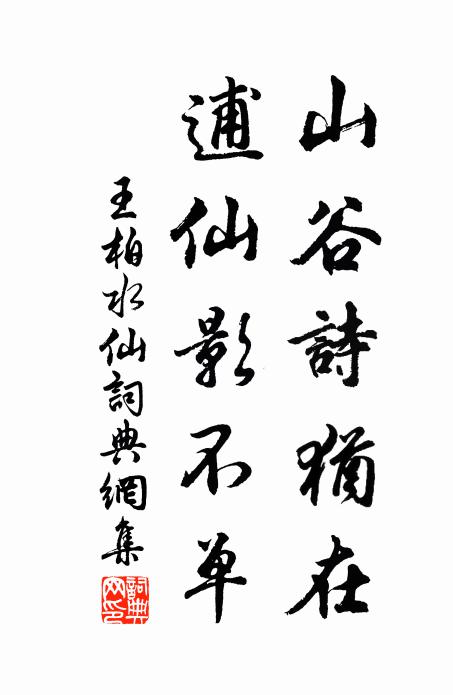 山谷詩猶在
逋仙影不单
王柏水仙詞典網集
詞典網印